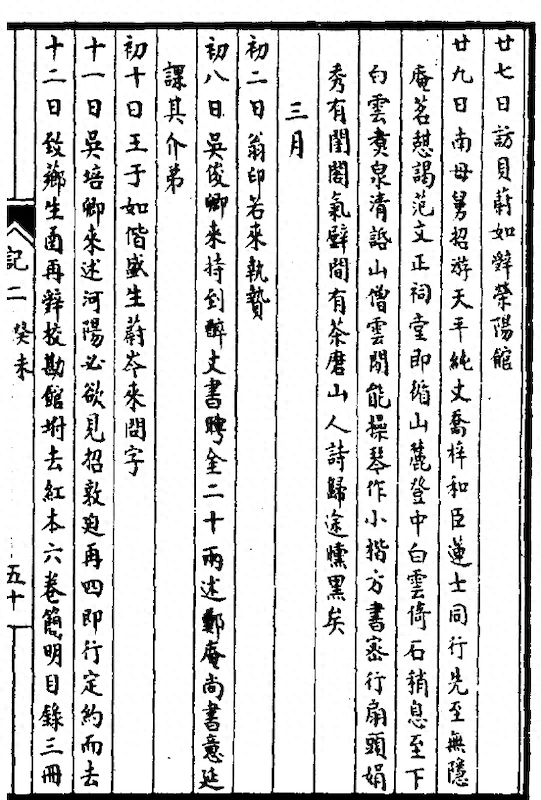 廿七日訪貝蔚如辤榮陽館
廿九日南母舅招游天平純丈喬梓和臣蓮士同行先至無隱
庵茗憇謁范文正祠堂即循山麓登中白雲倚石稍息至下
白雲煑泉清話山僧雲閒能操琴作小楷方書密行扇頭娟
秀有閨閣氣壁間有茶磨山人詩歸途曛黑矣
三月
初二日翁印若來執贄
初八日吳俊卿來持到醉丈書聘金二十兩述鄭庵尚書意延
課其介弟
初十日王于如偕盛生蔚岑來問字
十一日吳培卿來述河陽必欲見招敦迫再四即行定約而去
十二日致薌生函再辤校勘館坿去紅本六卷簡明目錄三冊
記二 癸未
五十